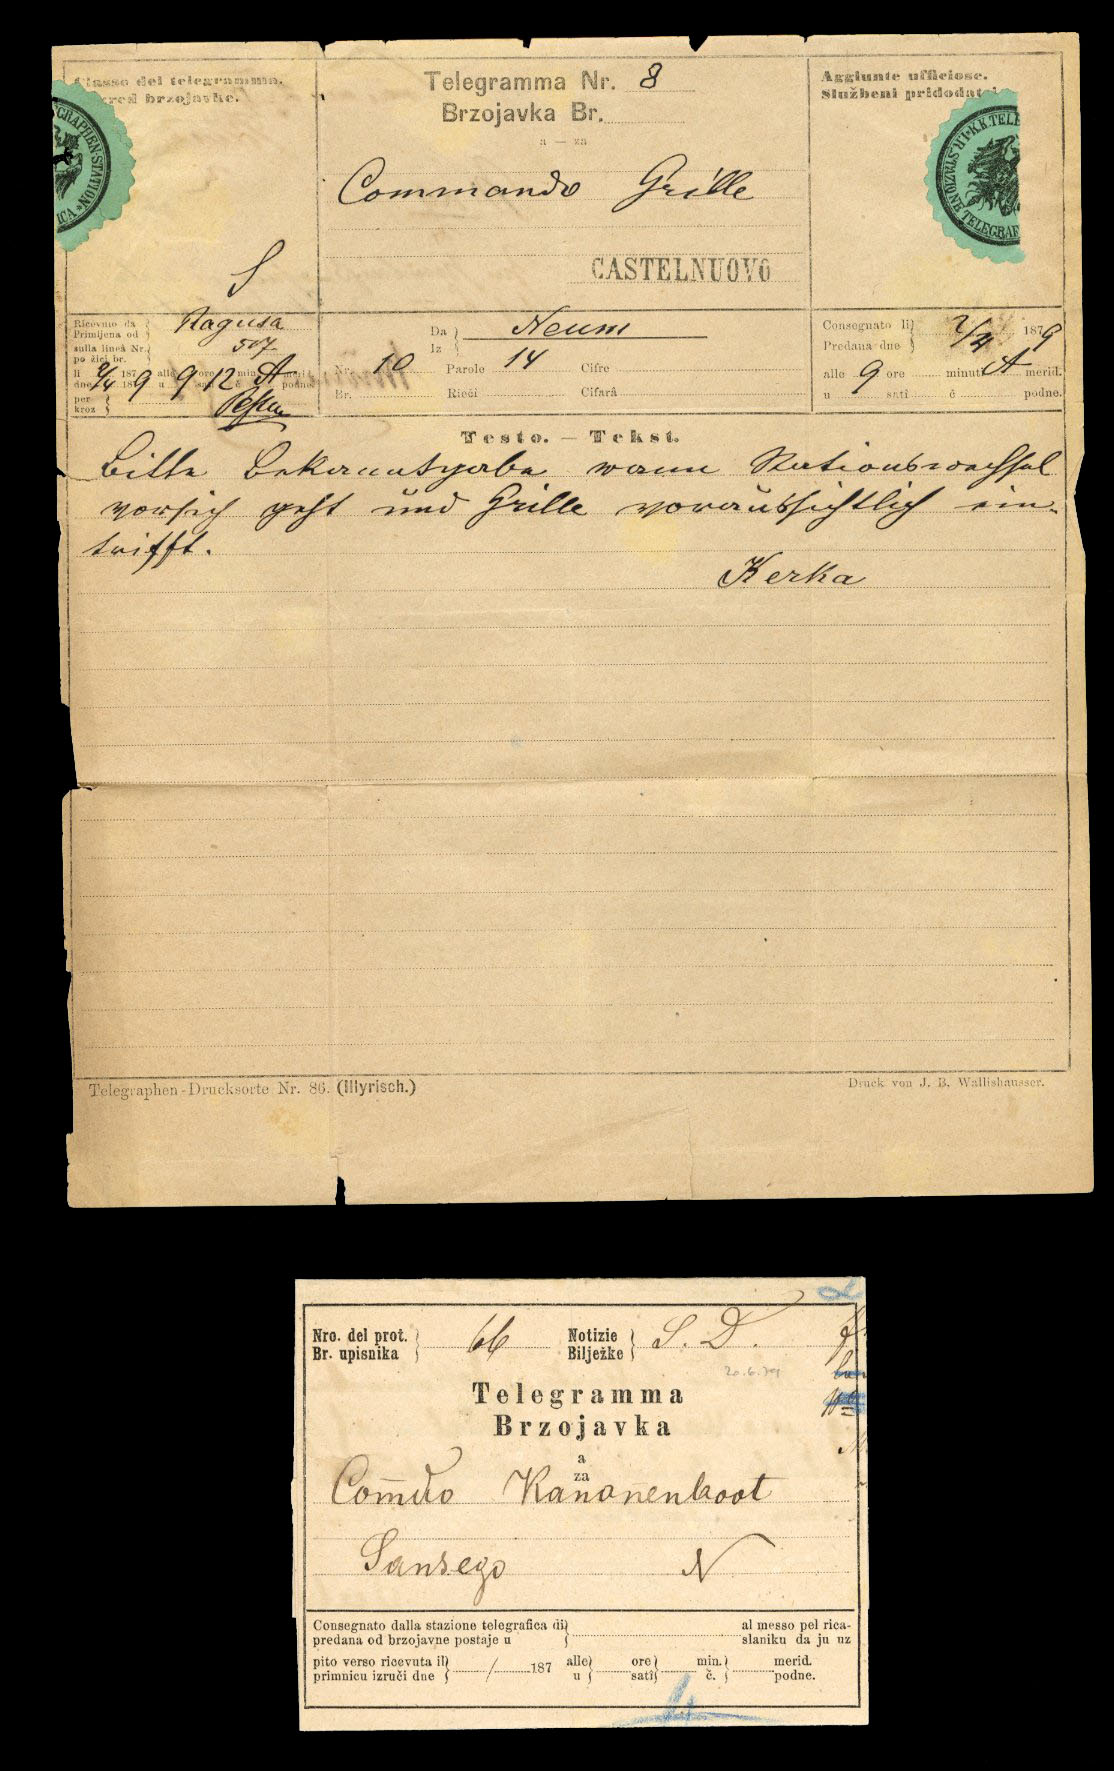 Classo del telegramma.
zred brzojavke.
GRAPHEN-STATION*
ICA
Telegramma Nr. 8
Brzojavka Br.
a — za
Commando Grille
CASTELNUOVO
Aggiunte ufficiose.
Službeni pridodatci
K.K.TELE
STAZIONE TELEGRAF
S
Ricevuto da
Primljena od
Ragusa
sulla linea Nr.
po žici br.
507
li 2/4 1879 alle 9 ore 12 min. A meri
dne 187 u sati č podne
per
kroz
Da
Iz
Neum
Nr. 10 Parole 14 Cifre
Br. Rieči Cifarâ
Consegnato li 2/4 1879
Predana dne
alle 9 ore minuti A merid.
u sati č podne.
Testo. — Tekst.
Bitte Bekanntgabe wann Stationswechsel
vorsich geht und Grille voraussichtlich ein-
trifft.
Kerka
Telegraphen-Drucksorte Nr. 86. (Illyrisch.)
Druck von J. B. Wallishausser.
Nro. del prot. 66 Notizie S. D.
Br. upisnika Bilježke
20.6.79
Telegramma
Brzojavka
a
za
Com̄do Kanonenboot
Sansego N
Consegnato dalla stazione telegrafica di al messo pel rica-
predana od brzojavne postaje u slaniku da ju uz
pito verso ricevuta il / 187 alle ore min. merid.
primnicu izruči dne u sati č. podne.